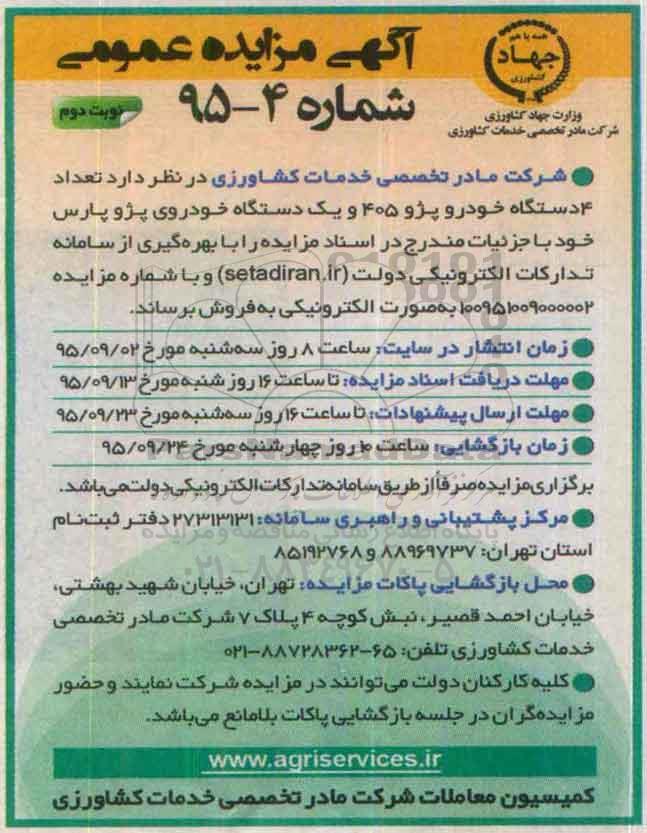 آگهی مزایده عمومی
شماره ۴-۹۵
نوبت دوم
همه با هم
جهاد
کشاورزی
وزارت جهاد کشاورزی
شرکت مادر تخصصی خدمات کشاورزی
شرکت مادر تخصصی خدمات کشاورزی در نظر دارد تعداد
۴دستگاه خودرو پژو ۴۰۵ و یک دستگاه خودروی پژو پارس
خود با جزئیات مندرج در اسناد مزایده را با بهره‌گیری از سامانه
تدارکات الکترونیکی دولت (setadiran.ir) و با شماره مزایده
۱۰۰۹۵۱۰۰۹۰۰۰۰۰۲ به‌صورت الکترونیکی به‌فروش برساند.
زمان انتشار در سایت: ساعت ۸ روز سه‌شنبه مورخ ۹۵/۰۹/۰۲
مهلت دریافت اسناد مزایده: تا ساعت ۱۶ روز شنبه مورخ ۹۵/۰۹/۱۳
مهلت ارسال پیشنهادات: تا ساعت ۱۶ روز سه‌شنبه مورخ ۹۵/۰۹/۲۳
زمان بازگشایی: ساعت ۱۰ روز چهارشنبه مورخ ۹۵/۰۹/۲۴
برگزاری مزایده صرفاً از طریق سامانه تدارکات الکترونیکی دولت می‌باشد.
مرکز پشتیبانی و راهبری سامانه: ۲۷۳۱۳۱۳۱ دفتر ثبت‌نام
استان تهران: ۸۸۹۶۹۷۳۷ و ۸۵۱۹۲۷۶۸
محل بازگشایی پاکات مزایده: تهران، خیابان شهید بهشتی،
خیابان احمد قصیر، نبش کوچه ۴ پلاک ۷ شرکت مادر تخصصی
خدمات کشاورزی تلفن: ۶۵-۸۸۷۲۸۳۶۲-۰۲۱
کلیه کارکنان دولت می‌توانند در مزایده شرکت نمایند و حضور
مزایده‌گران در جلسه بازگشایی پاکات بلامانع می‌باشد.
www.agriservices.ir
کمیسیون معاملات شرکت مادر تخصصی خدمات کشاورزی